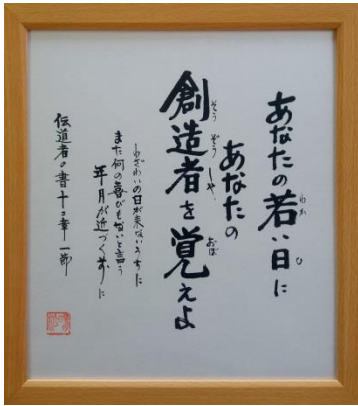 あなたの若い日に
あなたの
創造者を覚えよ
わざわいの日が来ないうちに
また何の喜びもないと言う
年月が近づく前に
伝道者の書十二章一節